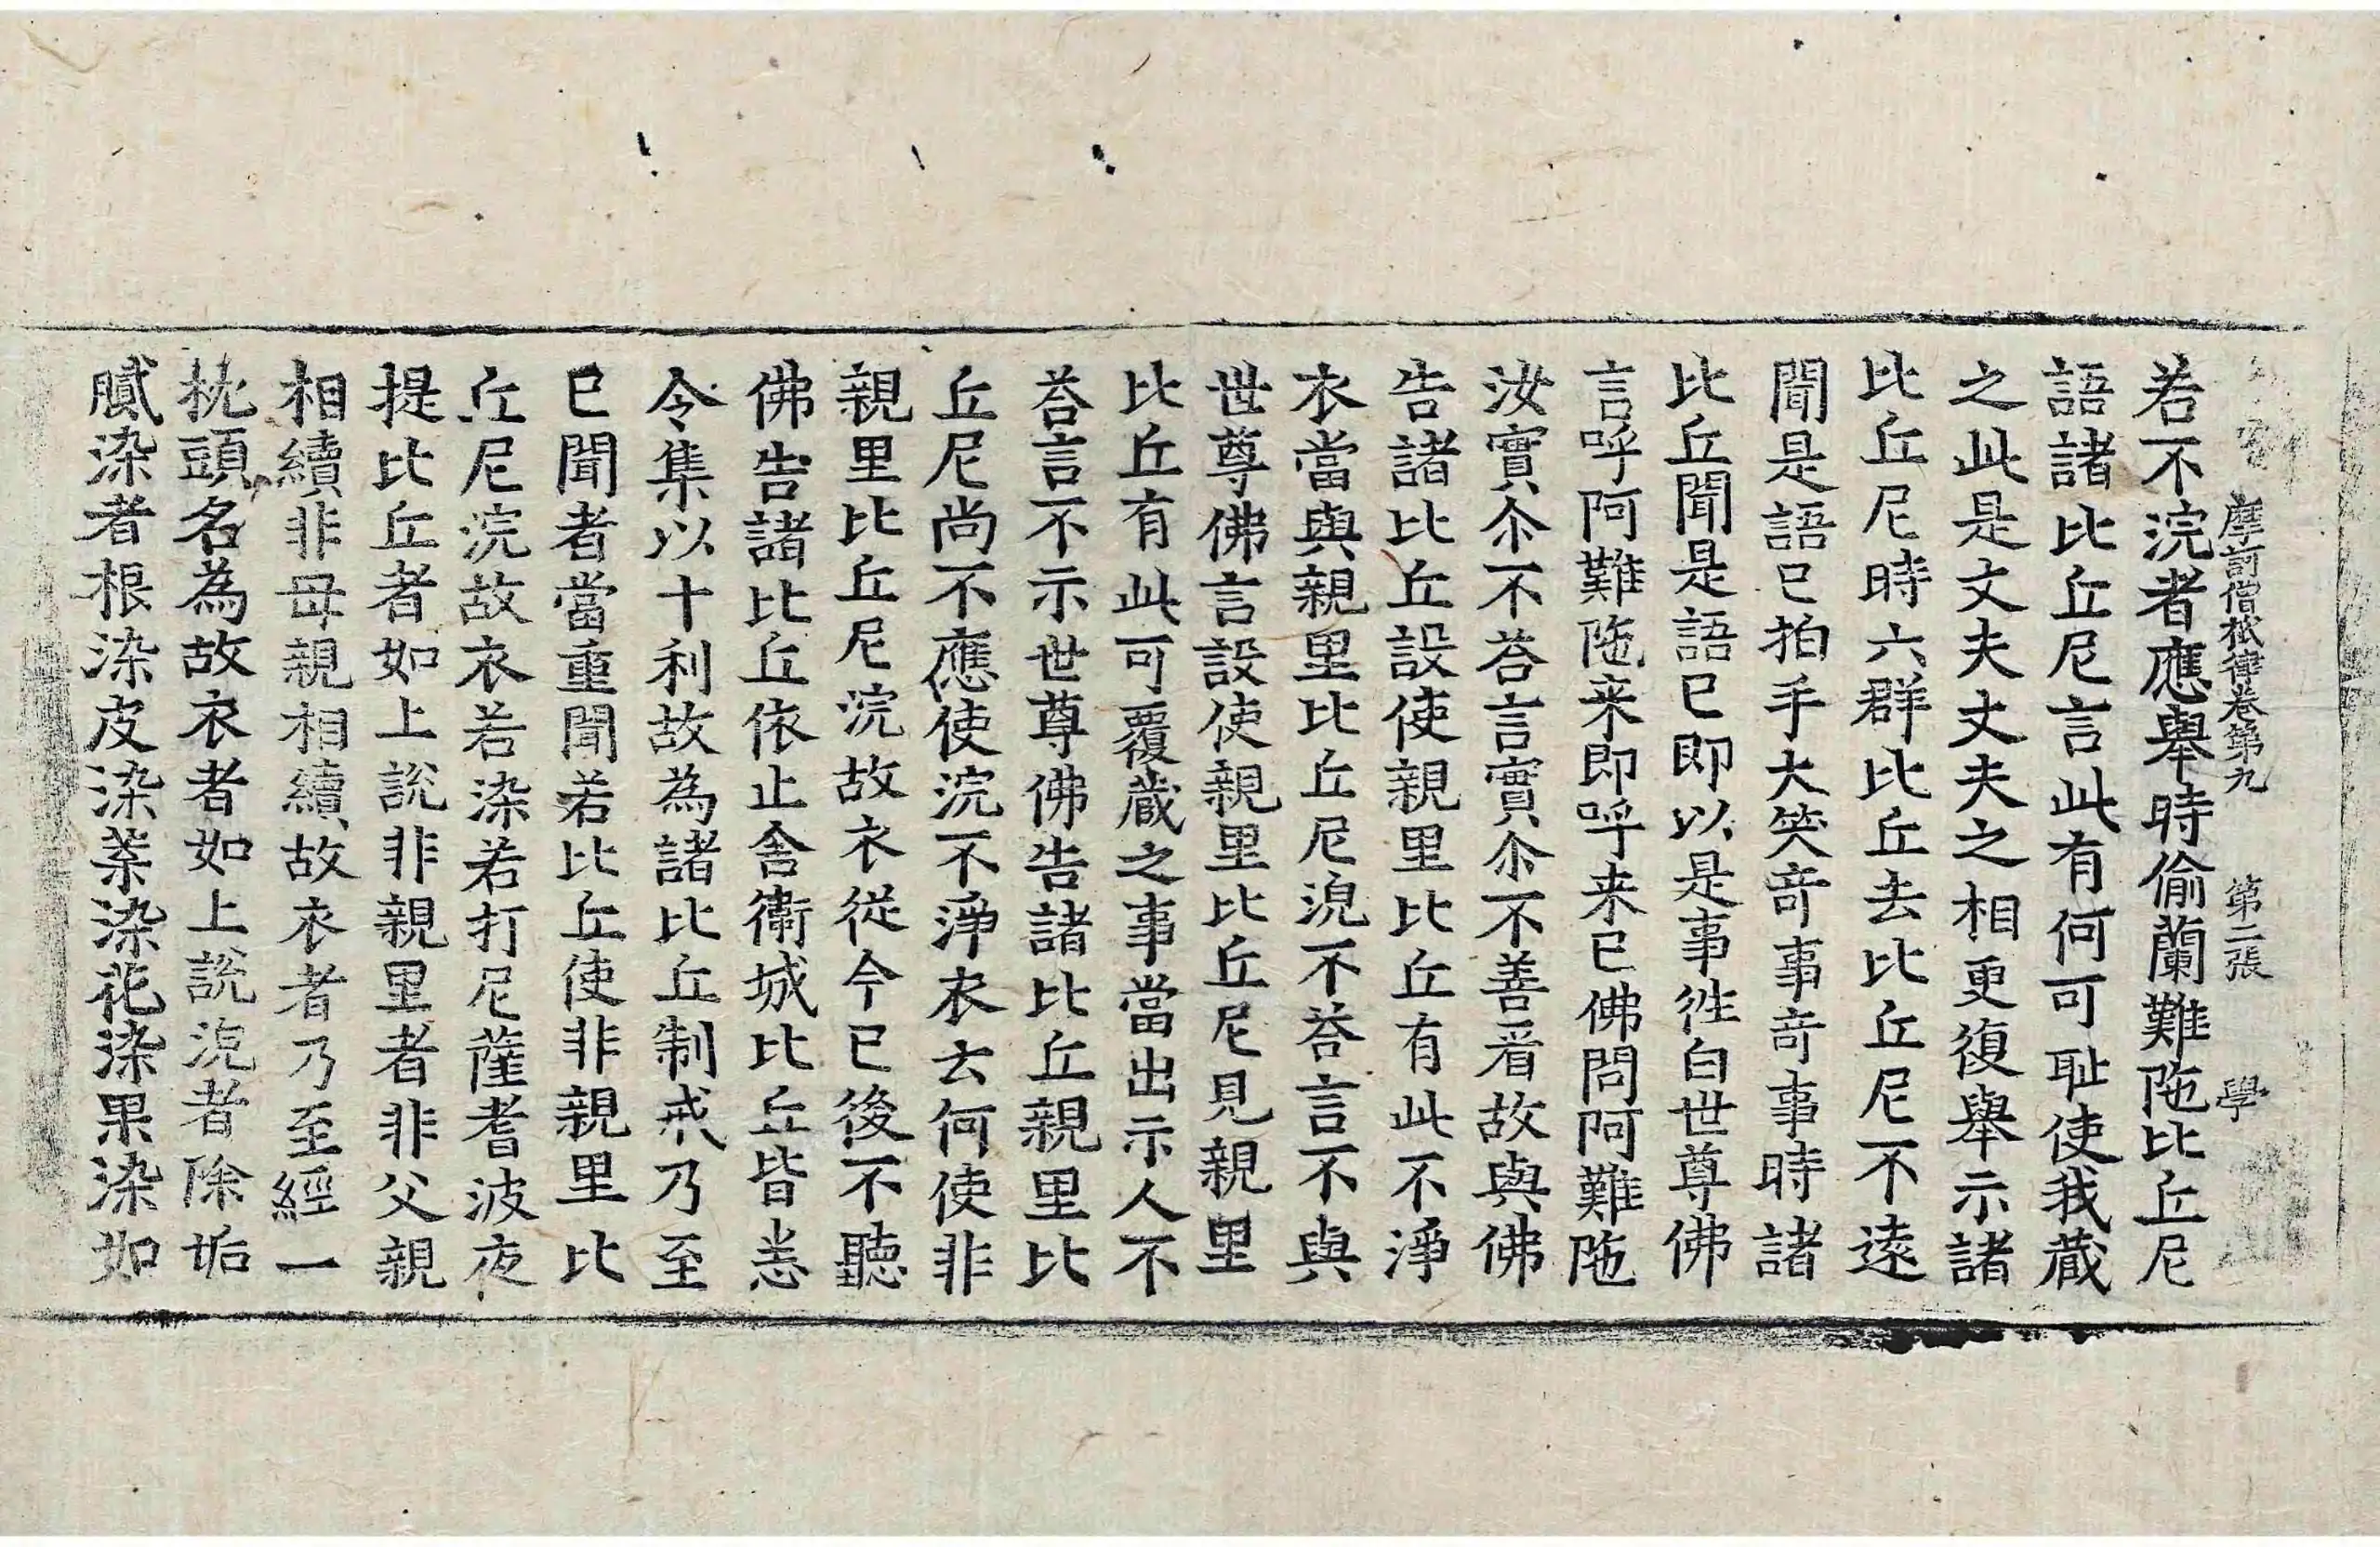 摩訶僧祇律卷第九 第二張 學
若不浣者應舉時偷蘭難陁比丘尼
語諸比丘尼言此有何可耻使我藏
之此是丈夫丈夫之相更復舉示諸
比丘尼時六群比丘去比丘尼不遠
聞是語已拍手大笑竒事竒事時諸
比丘聞是語已即以是事徃白世尊佛
言呼阿難陁来即呼来已佛問阿難陁
汝實尒不荅言實尒不善看故與佛
告諸比丘設使親里比丘有此不淨
衣當與親里比丘尼浣不荅言不與
世尊佛言設使親里比丘尼見親里
比丘有此可覆藏之事當出示人不
荅言不示世尊佛告諸比丘親里比
丘尼尚不應使浣不淨衣云何使非
親里比丘尼浣故衣從今已後不聽
佛告諸比丘依止舍衛城比丘皆悉
令集以十利故為諸比丘制戒乃至
已聞者當重聞若比丘使非親里比
丘尼浣故衣若染若打尼薩耆波夜
提比丘者如上說非親里者非父親
相續非母親相續故衣者乃至經一
枕頭名為故衣者如上說浣者除垢
膩染者根染皮染葉染花染果染如